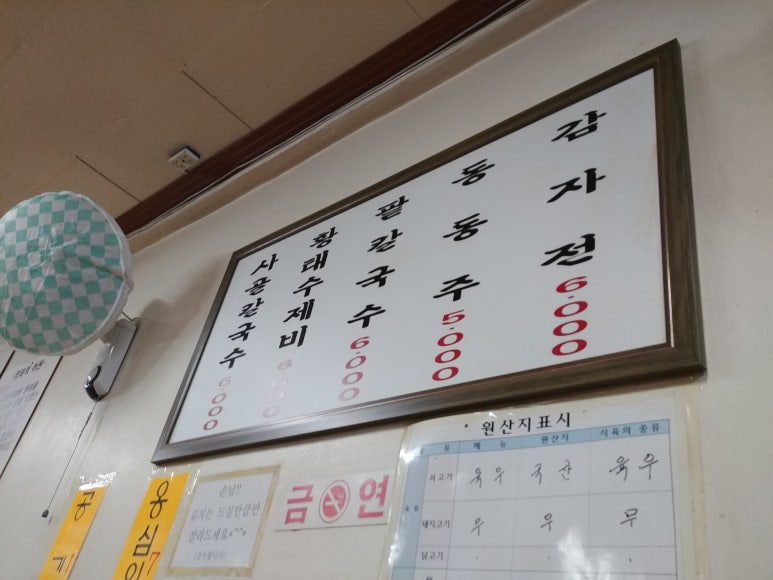 사골칼국수 6.000
황태수제비 6.000
팥칼국수 6.000
동동주 5.000
감자전 6.000
공기
옹심이
손님!!
김치는 드실만큼만
잘라드세요*^^*
(감사합니다)
금연
원산지표시
메뉴 원산지 식육의 종류
육우 국산 육우
돼지고기 무 무 무
닭고기